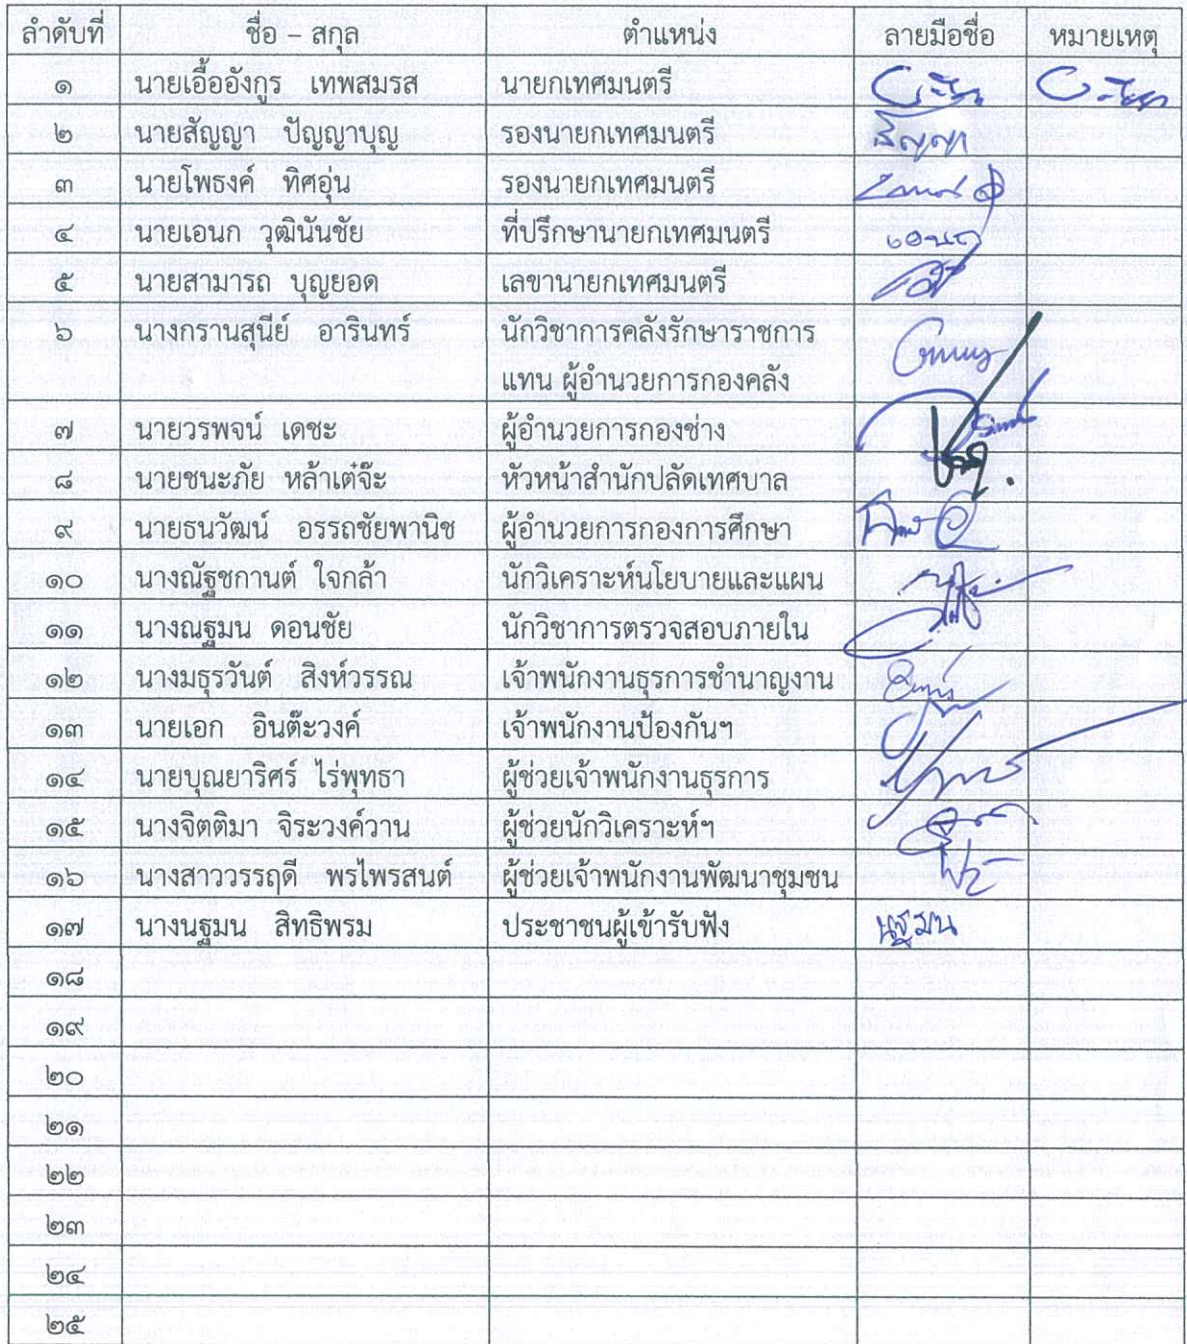 ลำดับที่ ชื่อ – สกุล ตำแหน่ง ลายมือชื่อ หมายเหตุ
๑ นายเอื้ออังกูร เทพสมรส นายกเทศมนตรี
๒ นายสัญญา ปัญญาบุญ รองนายกเทศมนตรี สัญญา
๓ นายโพธงค์ ทิศอุ่น รองนายกเทศมนตรี
๔ นายเอนก วุฒินันชัย ที่ปรึกษานายกเทศมนตรี เอนก
๕ นายสามารถ บุญยอด เลขานายกเทศมนตรี
๖ นางกรานสุนีย์ อารินทร์ นักวิชาการคลังรักษาราชการ
แทน ผู้อำนวยการกองคลัง
๗ นายวรพจน์ เดชะ ผู้อำนวยการกองช่าง
๘ นายชนะภัย หล้าเต๋จ๊ะ หัวหน้าสำนักปลัดเทศบาล
๙ นายธนวัฒน์ อรรถชัยพานิช ผู้อำนวยการกองการศึกษา
๑๐ นางณัฐชกานต์ ใจกล้า นักวิเคราะห์นโยบายและแผน
๑๑ นางณฐมน ดอนชัย นักวิชาการตรวจสอบภายใน
๑๒ นางมธุรวันต์ สิงห์วรรณ เจ้าพนักงานธุรการชำนาญงาน
๑๓ นายเอก อินต๊ะวงค์ เจ้าพนักงานป้องกันฯ
๑๔ นายบุณยาริศร์ ไรพุทธา ผู้ช่วยเจ้าพนักงานธุรการ
๑๕ นางจิตติมา จิระวงค์วาน ผู้ช่วยนักวิเคราะห์ฯ
๑๖ นางสาววรรฤดี พรไพรสนต์ ผู้ช่วยเจ้าพนักงานพัฒนาชุมชน
๑๗ นางนฐมน สิทธิพรม ประชาชนผู้เข้ารับฟัง นฐมน
๑๘
๑๙
๒๐
๒๑
๒๒
๒๓
๒๔
๒๕